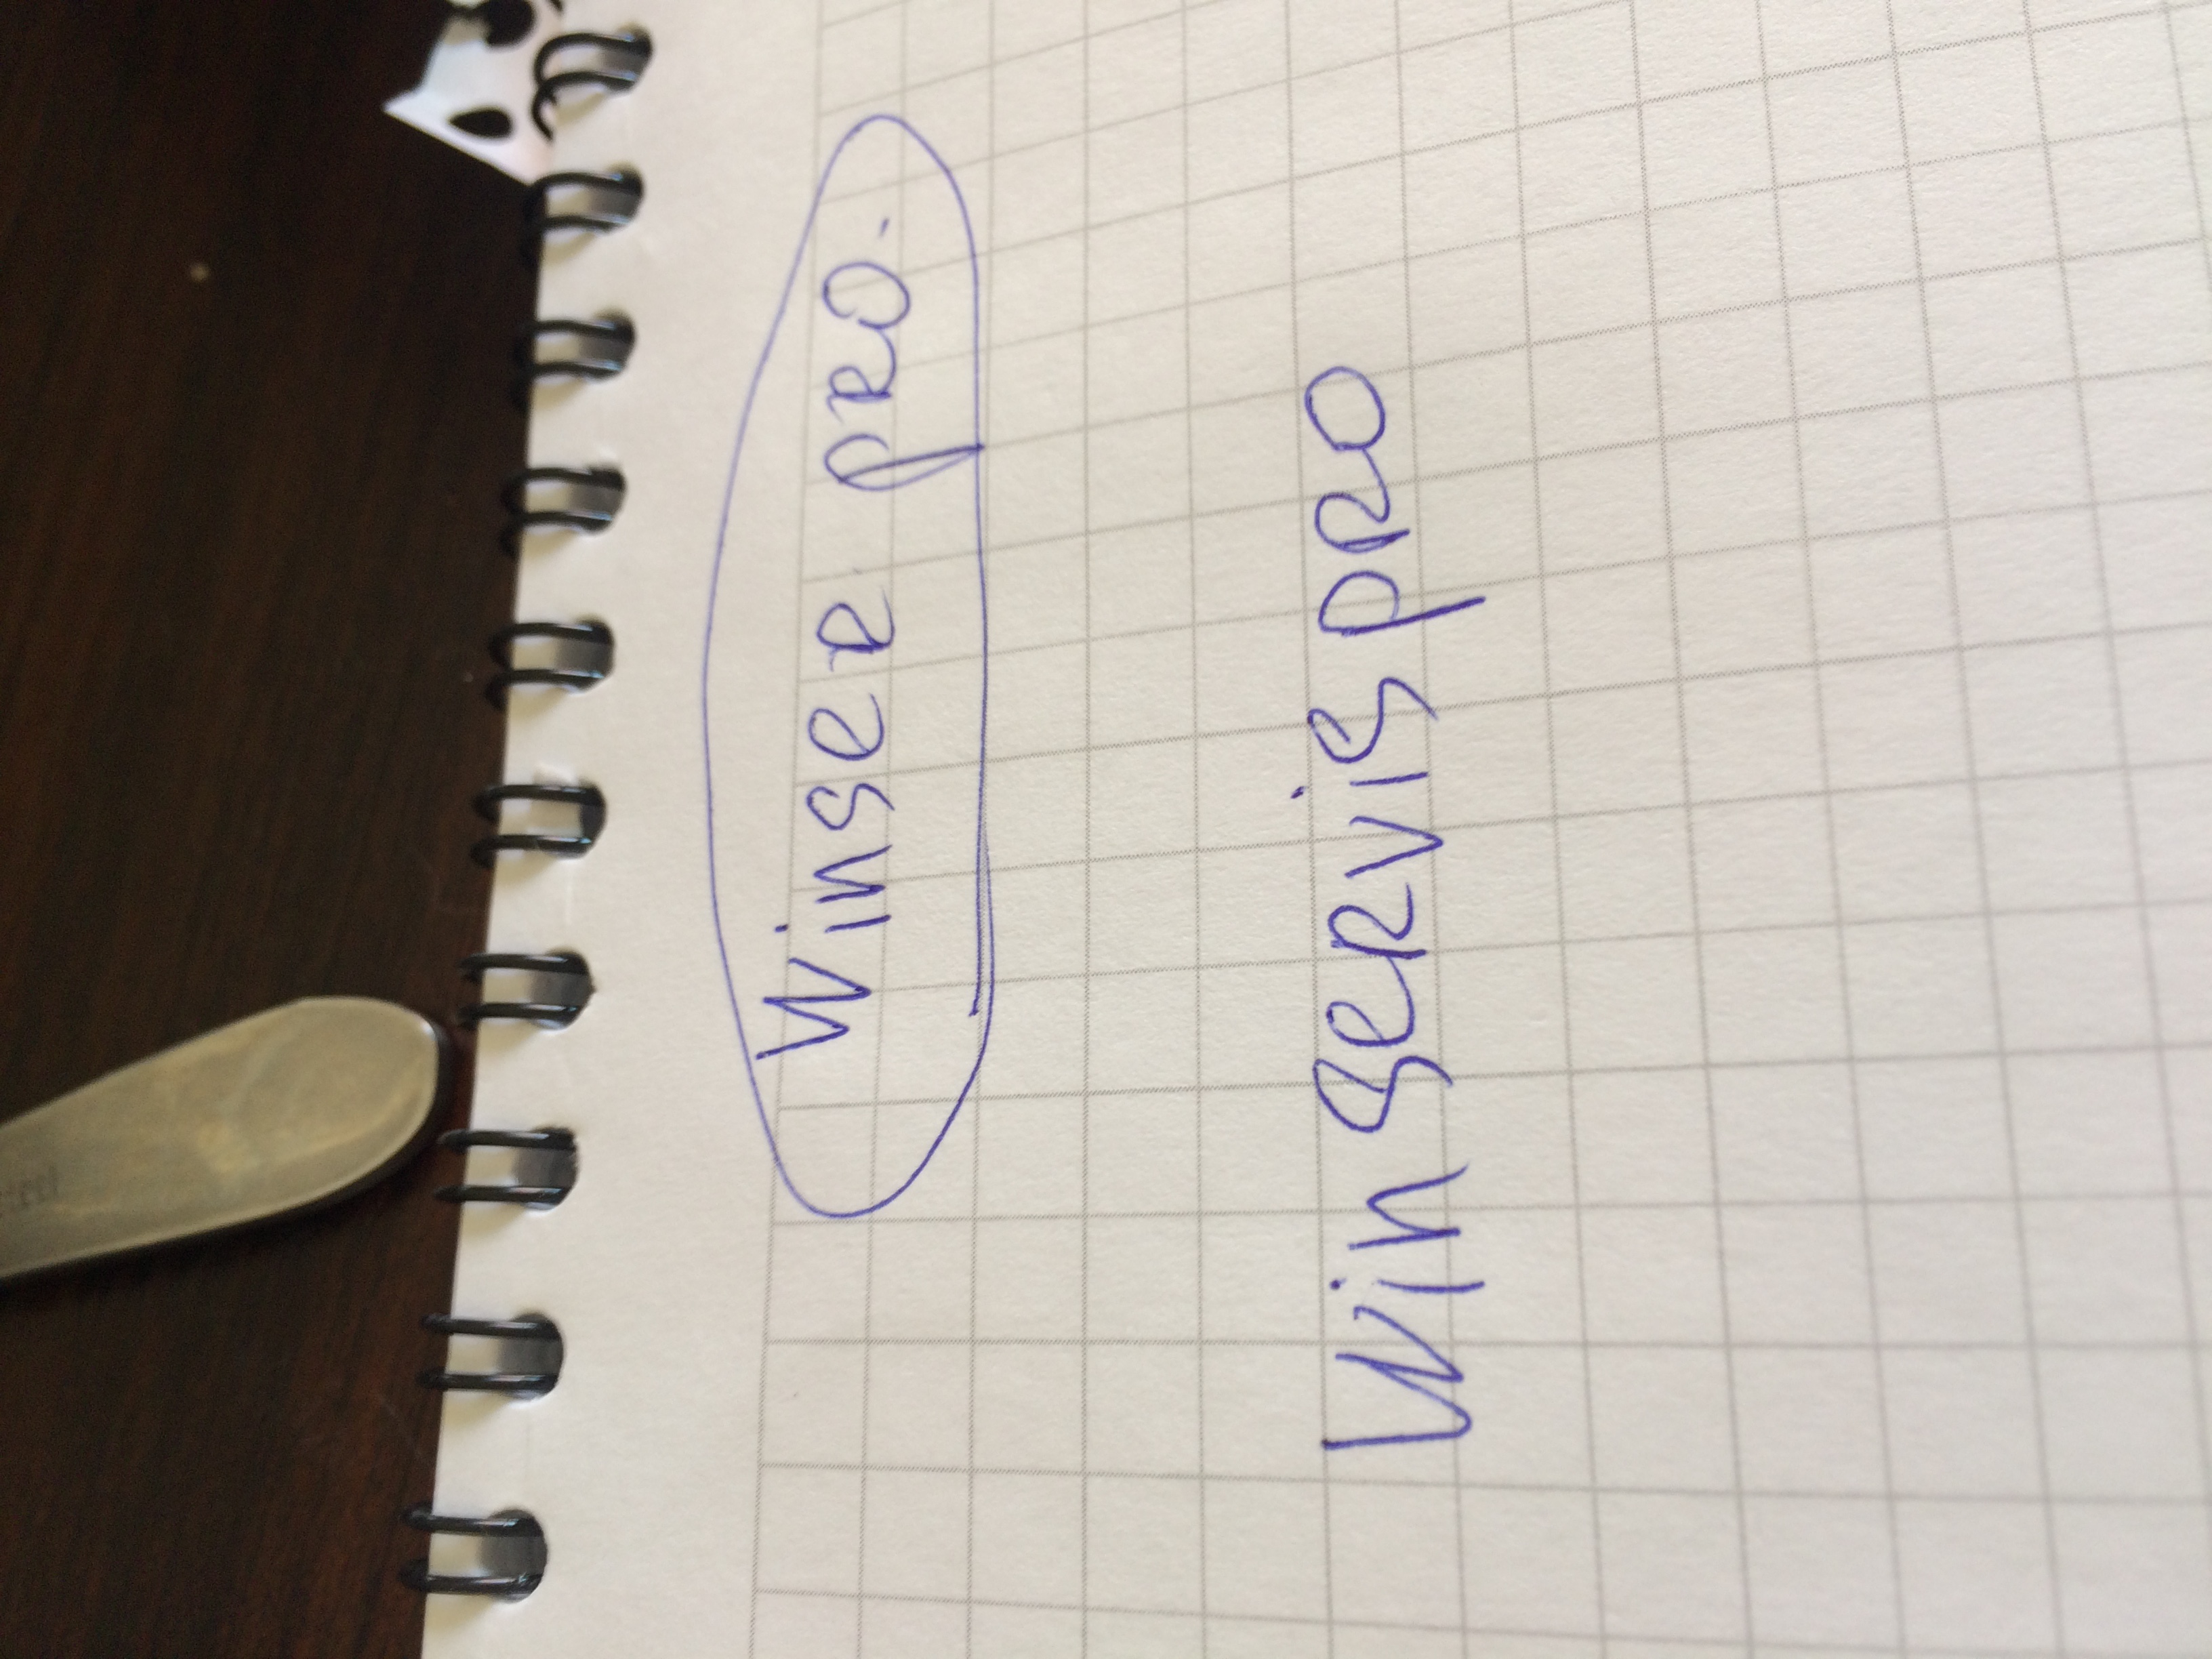 Winser pro.
Winservispro